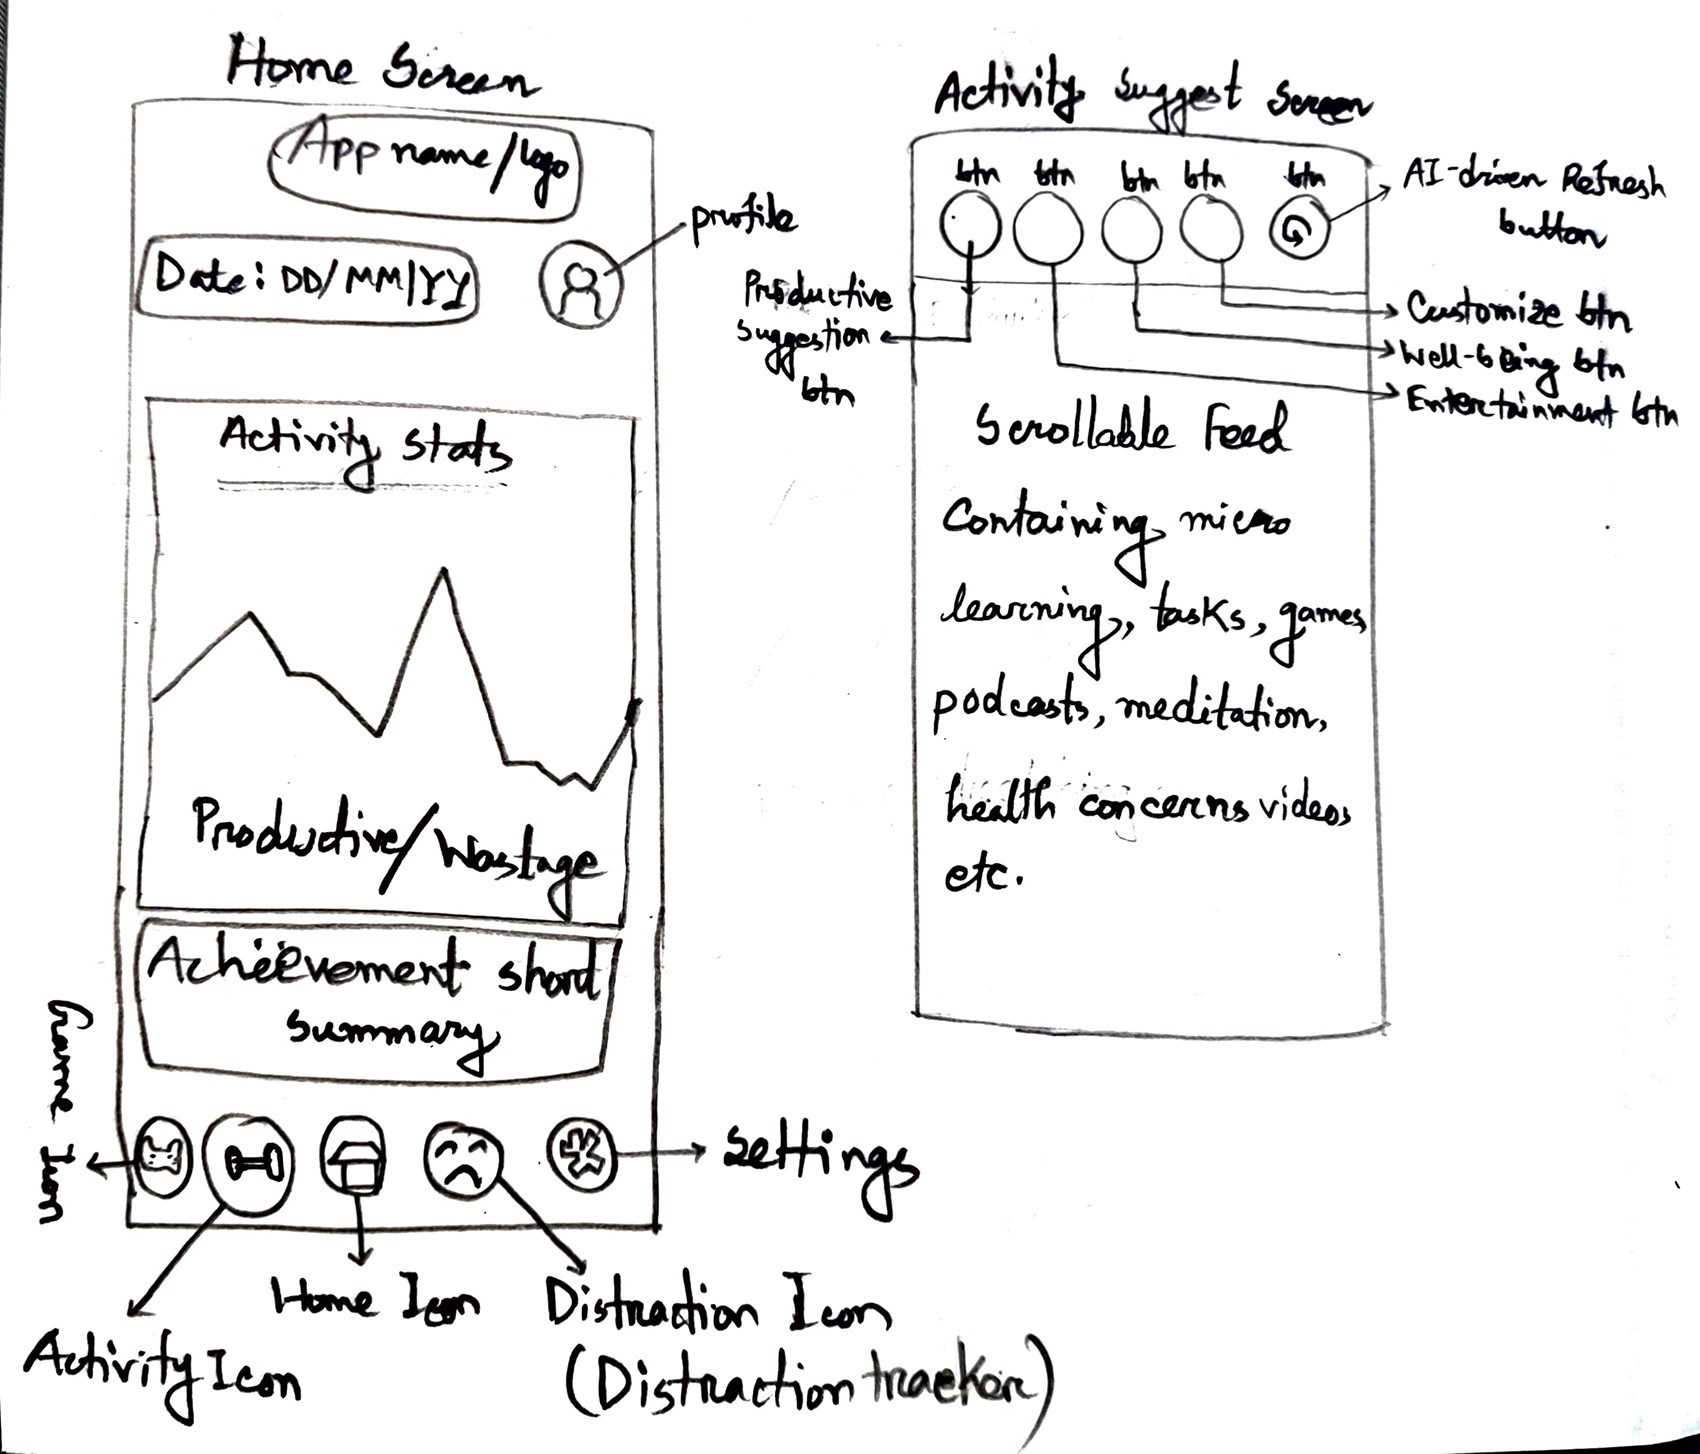 Home Screen
App name/logo
Date: DD/MM/YY
profile
Activity stats
Productive/Wastage
Achievement short
summary
Game Icon
settings
Home Icon
Distraction Icon
(Distraction tracker)
Activity Icon
Activity Suggest Screen
btn btn btn btn btn
AI-driven Refresh
button
Productive
suggestion
btn
Customize btn
Well-being btn
Entertainment btn
Scrollable Feed
Containing micro
learning, tasks, games,
podcasts, meditation,
health concerns videos
etc.